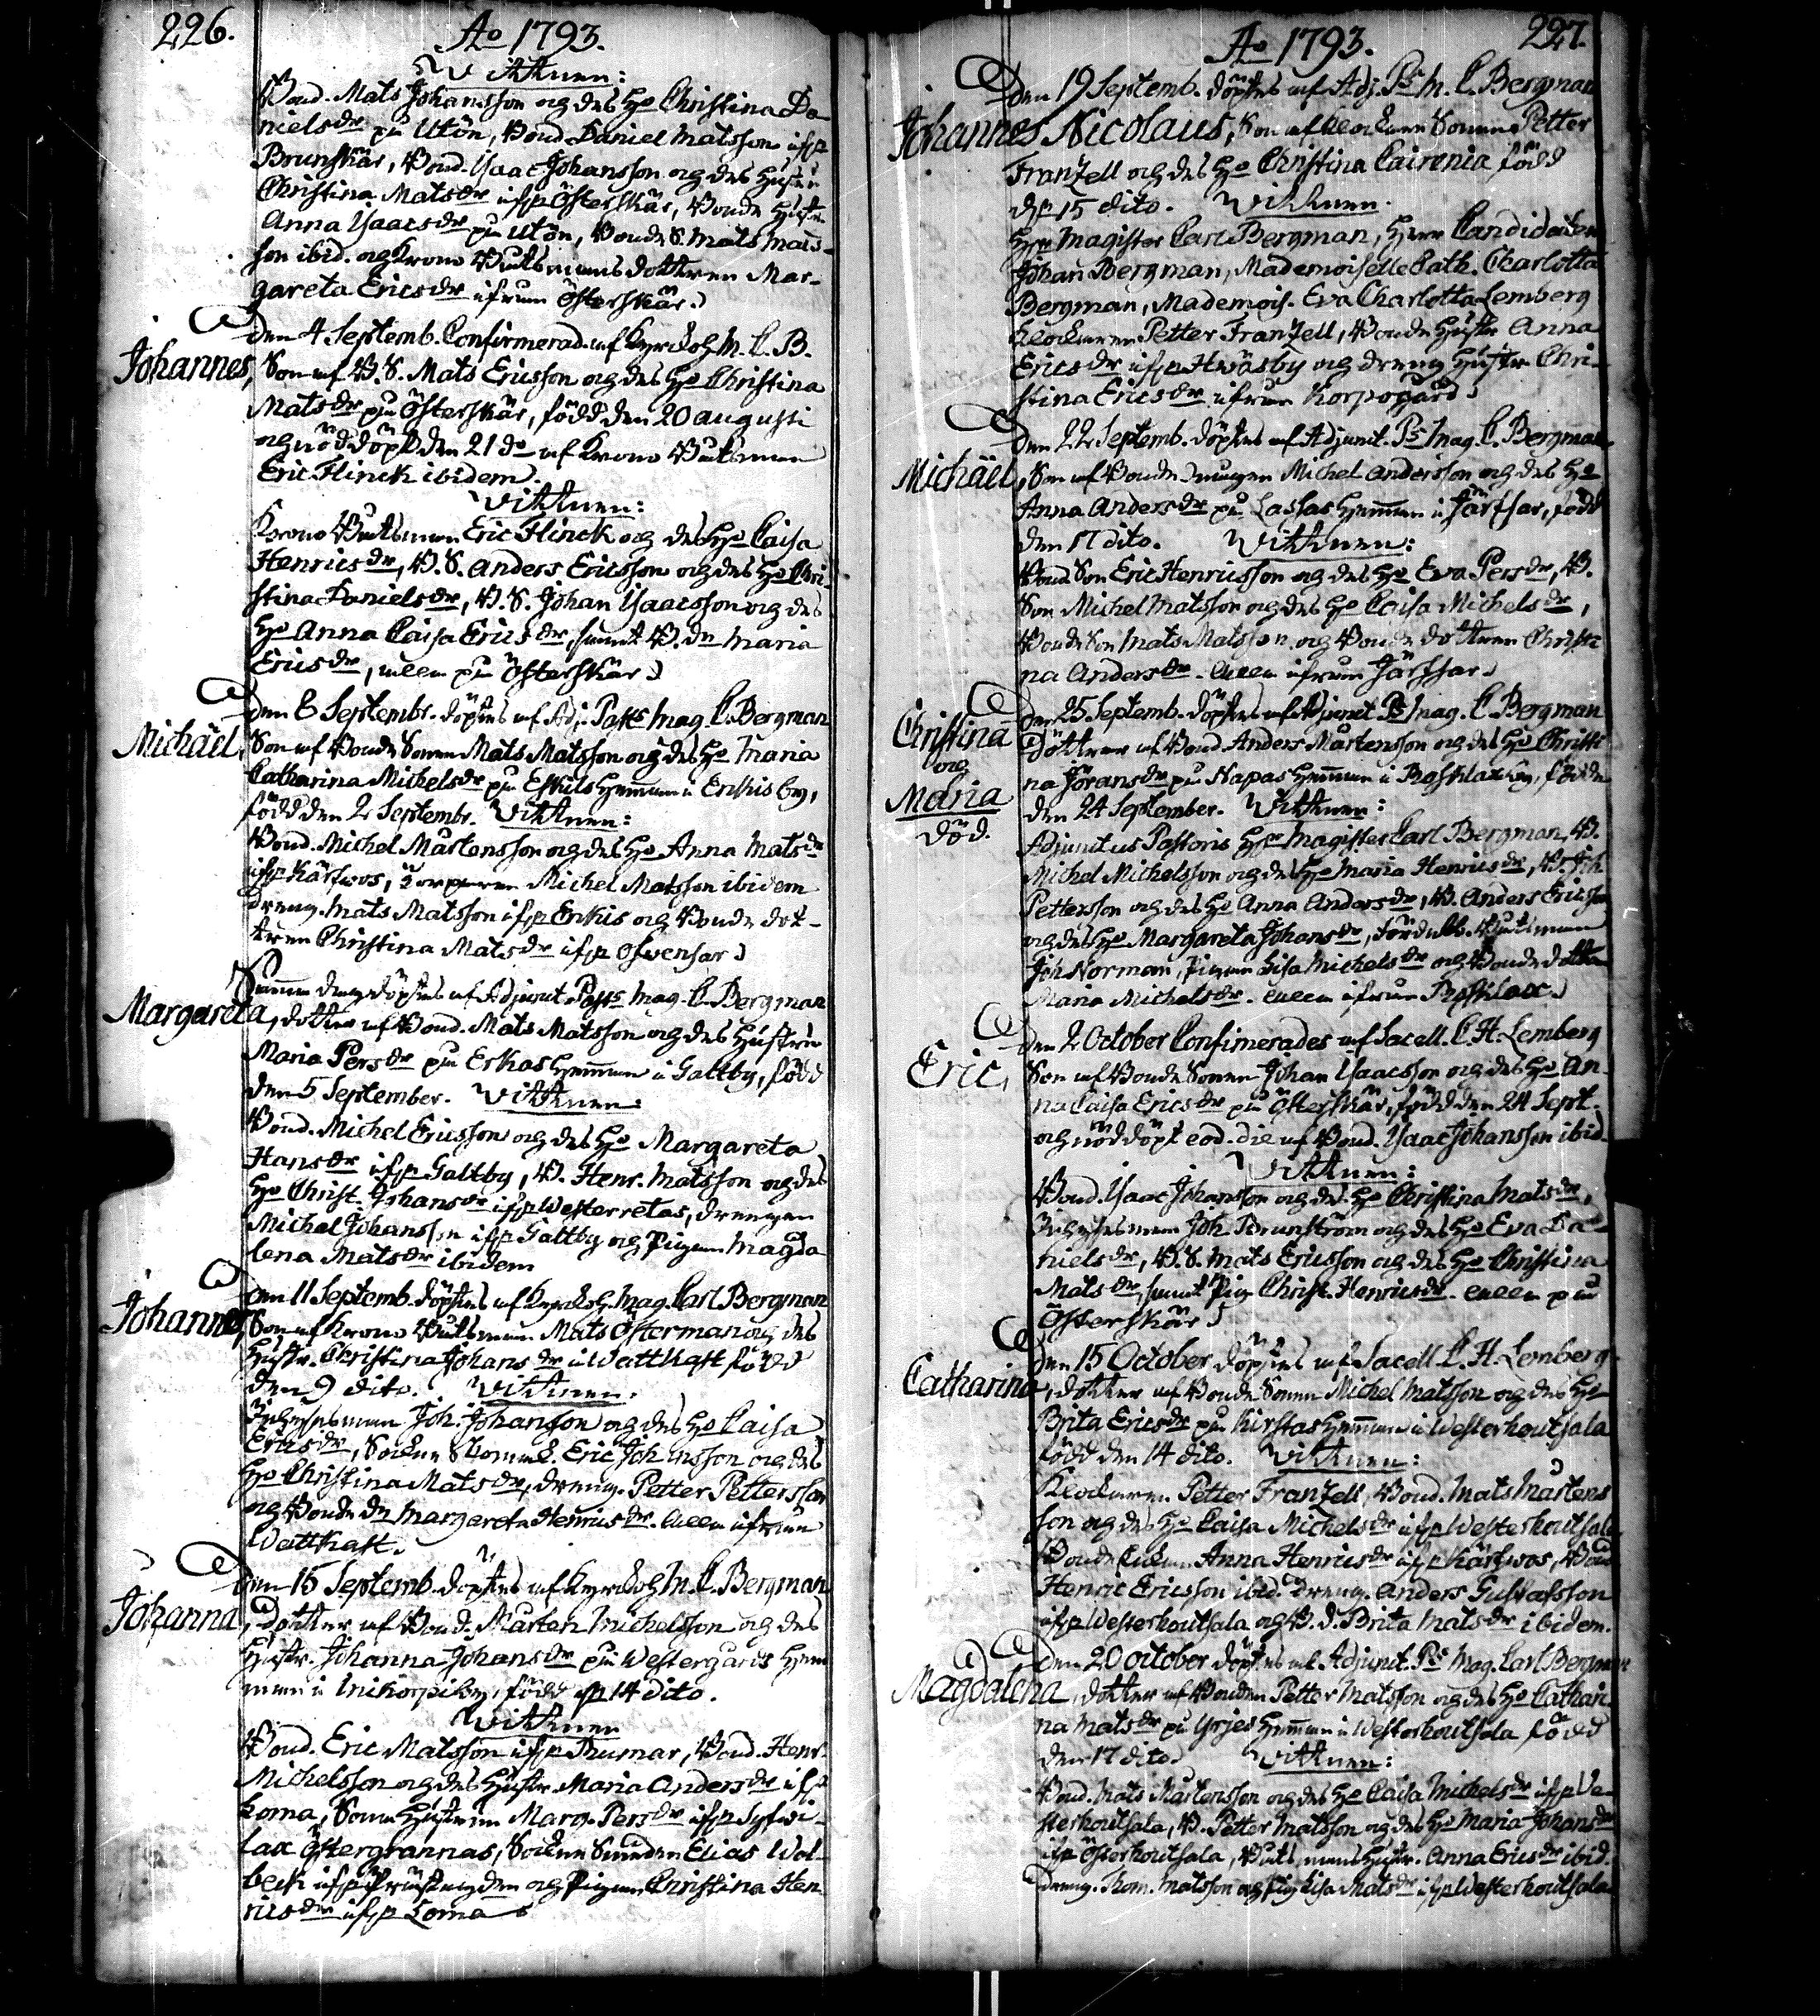 226.
Ao 1793.
Wittnen:
Bond. Mats Johansson och des Ho Christina Da-
nielsdr på Utön, Bond Daniel Matsson ifrån
Brunskär, Bond. Isaac Johansson och des Hustru
Christina Matsdr ifrån Österskär, Bonde Hustr.
Anna Isaacsdr på Utön, Bonde S. Mats Mats-
son ibid. och Krono Båtsmans dottren Mar-
gareta Ericsdr ifrån Österskär.
Johannes,
Den 4 Septemb. Confirmerad. af M. C. B.
Son af B. S. Mats Ericsson och des Ho Christina
Matsdr på Österskär, född den 20 augusti
och nöddöpt den 21 do af Krono Båtsman
Eric Flinck ibidem.
Wittnen:
Krono Båtsman Eric Flinck och des Ho Caisa
Henricsdr, B. S. Anders Ericsson och des Ho Chri-
stina Danielsdr, B. S. Johan Isaacsson och des
Ho Anna Caisa Ericsdr, samt B. dr Maria
Ericsdr, allem på Österskär
Michäel,
Den 8 Septembr. döptes af Adj. Past. Mag. C. Bergman
Son af Bonde Sonen Mats Matsson och des Ho Maria
Catharina Michelsdr på Eskils Hemman i Enkis by,
född den 2 Septembr. Wittnen:
Bond. Michel Mårtensson och des Ho Anna Matsdr
ifrån Kärfwos, Michel Matsson ibidem
dreng. Mats Matsson ifrån Enkis och Bonde dot-
tren Christina Matsdr ifrån Ofvensor
Margareta,
Samma dag döptes af Adjunct. Past. Mag. C. Bergman
dotter af Bond. Mats Matsson och des Hustru
Maria Persdr på Erkas Hemman i Galtby, född
den 5 September. Wittnen:
Bond. Michel Ericsson och des Ho Margareta
Hansdr ifrån Galtby, B. Henr. Matsson och des
Ho Christ. Johansdr ifrån Westerretas, drengen
Michel Johansson ifrån Galtby och Pigan Magda
lena Matsdr ibidem
Johannes,
Den 11 Septemb. döptes af Mag. Carl Bergman
Son af Krono Båtsman Mats Österman och des
Hustr. Christina Johansdr i Wattkast född
den 9 dito. Wittnen.
Joh. Johansson och des Ho Caisa
Ericsdr, Sockne Skomak. Eric Johansson och des
Ho Christina Matsdr, dreng. Petter Pettersson
och Bonde dr Margareta Henricsdr. allem ifrån
Wattkast.
Johanna,
Den 15 Septemb. döptes af M. C. Bergman
dotter af Bond. Mårten Michelsson och des
Hustr. Johanna Johansdr på Westergårds Hem
man i född den 14 dito.
Wittnen
Bond. Eric Matsson ifrån Rumar, Bond. Henr.
Michelsson och des Hustr. Maria Andersdr ifrån
Loma, Sone Hustrun Marg. Persdr ifrån
lax Östergrannas, Sockne Smeden Elias Wol-
beck ifrån och Pigan Christina Hen
ricsdr ifrån Loma
227.
Ao 1793.
Johannes Nicolaus,
Den 19 Septemb. döptes af Adj. Ps M. C. Bergman
Son af Klockare Sonen Petter
Franzell och des Ho Christina Caironia född
den 15 dito. Wittnen.
Herr Magister Carl Bergman, Herr Candidaten
Johan Bergman, Mademoiselle Cath. Charlotta
Bergman, Mademois. Eva Charlotta Lemberg
Klockaren Petter Franzell, Bonde Hustr. Anna
Ericsdr ifrån Hwäsby och dreng Hustr. Chri-
stina Ericsdr ifrån Korpogård
Michäel,
Den 22 Septemb. döptes af Adjunct. Ps Mag. C. Bergman
Son af Bonde Michel Andersson och des Ho
Anna Andersdr på Lassas Hemman i Järfsar, född
den 17 dito. Wittnen:
Bonde Son Eric Henricsson och des Ho Eva Persdr, B.
Son Michel Matsson och des Ho Caisa Michelsdr,
Bonde Son Mats Matsson och Bonde dottren Christi
na Andersdr. allem ifrån Järfsar
Christina
och
Maria
död.
Den 25 Septemb. döptes af Adjunct Ps Mag. C. Bergman
döttrar af Bond. Anders Mårtensson och des Ho Christi
na Jöransdr på Napas Hemman i Rosklax by, födde
den 24 September. Wittnen:
Adjunctus Pastoris Herr Magister Carl Bergman, B.
Michel Michelsson och des Ho Maria Henricsdr, B. Joh.
Pettersson och des Ho Anna Andersdr, B. Anders Ericsson
och des Ho Margareta Johansdr, Båtsman
Joh Norman, Pigan Lisa Michelsdr och Bonde dottren
Maria Michelsdr. allem ifrån Rosklax
Eric,
Den 2 October Confirmerades af Sacell. C. H. Lemberg
Son af Bonde Sonen Johan Isaacsson och des Ho An-
na Caisa Ericsdr på Österskär, född den 24 Sept.
och nöddöpt eod. die af Bond. Isaac Johansson ibid.
Wittnen:
Bond. Isaac Johansson och des Ho Christina Matsdr,
Joh. Brunström och des Ho Eva Da-
nielsdr, B. S. Mats Ericsson och des Ho Christina
Matsdr, samt Pig. Christ. Henricsdr. allem på
Österskär
Catharina,
Den 15 October döptes af Sacell C. H. Lemberg
dotter af Bonde Sonen Michel Matsson och des Ho
Brita Ericsdr på Kirstas Hemman i Westerhoutsala
född den 14 dito. Wittnen:
Klockaren Petter Franzell, Bond. Mats Mårtens
son och des Ho Caisa Michelsdr ifrån Westerhoutsala
Bonde Anna Henricsdr ifrån Kärfwos, Bond
Henric Ericsson ibid. dreng. Anders Gustafsson
ifrån Westerhoutsala och B. d. Brita Matsdr ibidem.
Magdalena,
Den 20 october döptes af Adjunct. Ps Mag. Carl Bergman
dotter af Bonden Petter Matsson och des Ho Cathari
na Matsdr på Yrjes Hemman i Westerhoutsala född
den 17 dito. Wittnen:
Bond. Mats Mårtensson och des Ho Caisa Michelsdr ifrån We-
sterhoutsala, B. Petter Matsson och des Ho Maria Johansdr
ifrån Österhoutsala, Båtsmans Hustr. Anna Ericsdr ibid.
dreng. Thom. Matsson och Pig. Lisa Matsdr ifrån Westerhoutsala